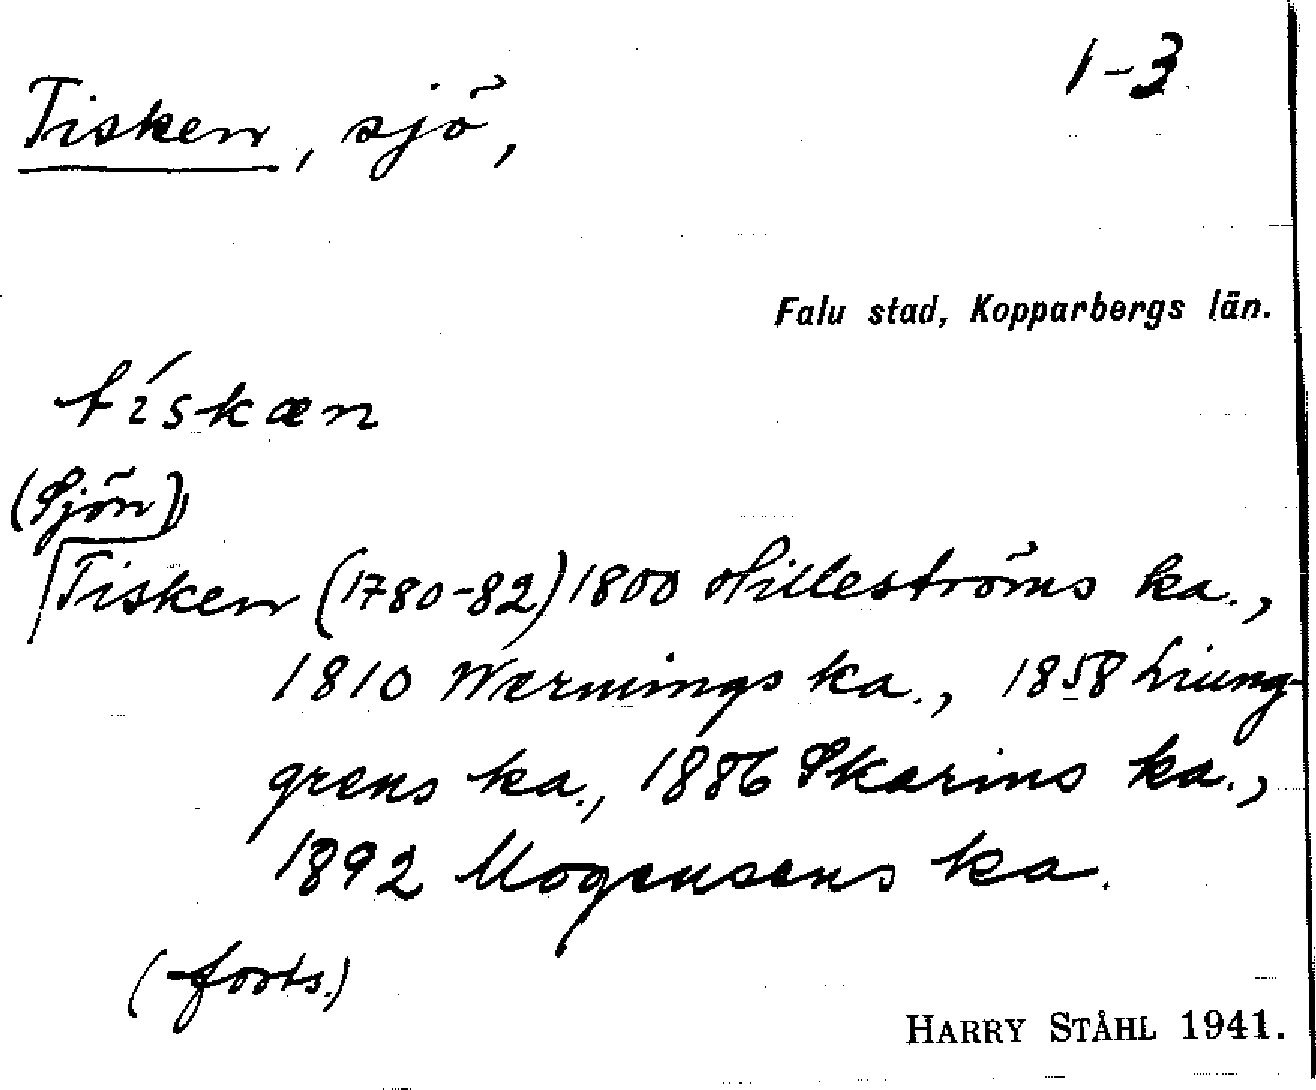 1-3
Tisken, sjö,
Falu stad, Kopparbergs län.
tískæn
(Sjön)
Tisken (1780-82) 1800 Hilleströms ka.,
1810 Wernings ka., 1858 Liung-
grens ka., 1886 Skarins ka.,
1892 Mogensens ka.
(forts.)
HARRY STÅHL 1941.